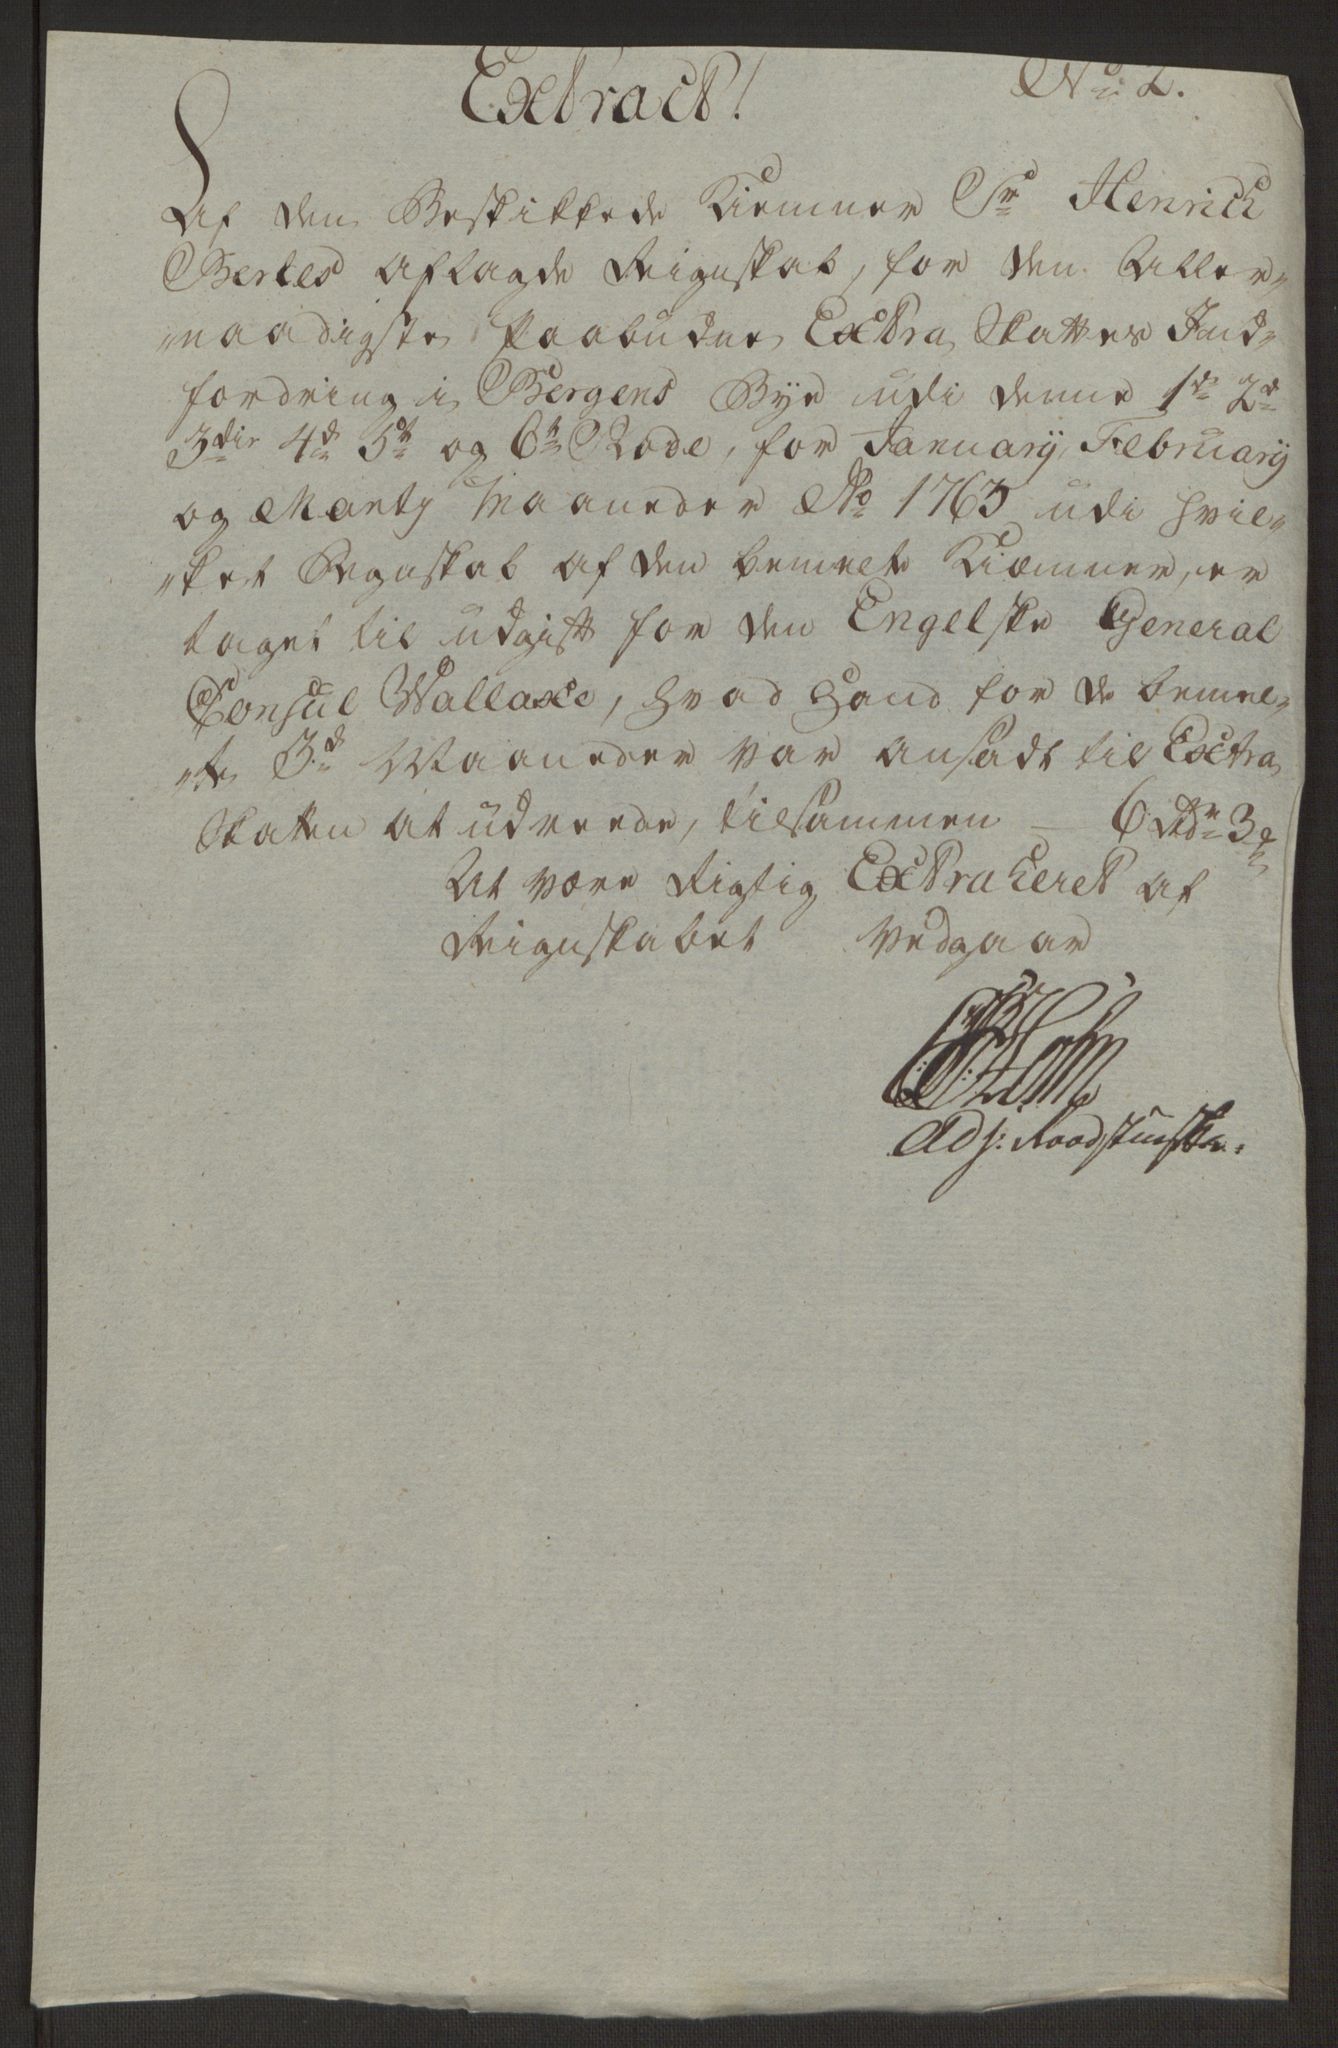 Extract! No: 2.
Af den Beskikkede Kiemner Sr Henrich
Bertes aflagde Reignskab, for den Aller„
„naadigste Paabudne Extra Skattes Ind„
fordring i Bergens Bye udi denne 1ste 2den
3die 4de 5te og 6te Rode, for January, February
og Marty Maaneder Ao 1763 udi hvil„
„ket Regnskab af den bemelte Kiæmner, er
taget til udgift for den Engelske General
Consul Wallaxe, hvad hand for de bemel„
„te 3de Maaneder var ansadt til Extra
Skatten at udreede, tilsammen — 6 Rdr 3 ß
At være Rigtig Extraheret af
Reignskabet Vedgaar
Holm
Adj: Raadstueskr.